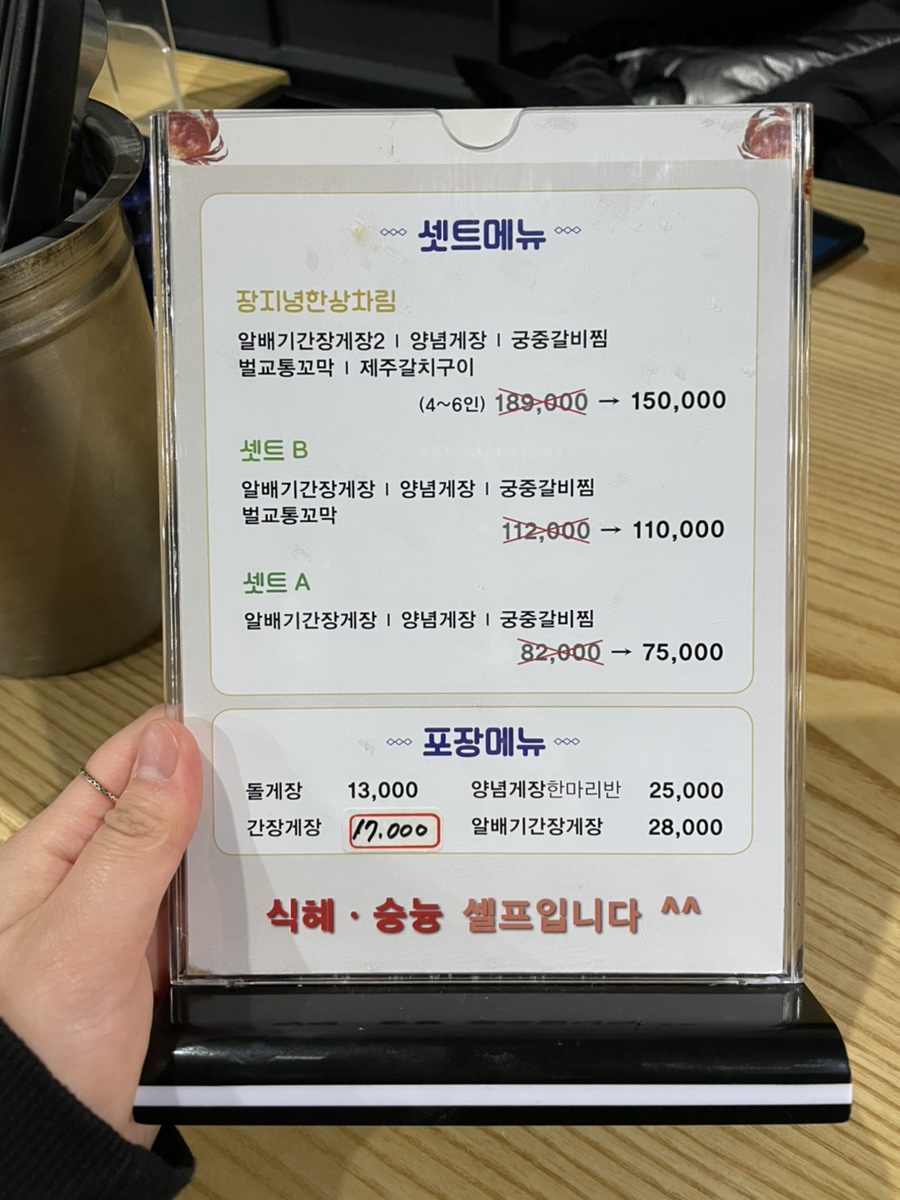 셋트메뉴
장지녕한상차림
알배기간장게장2 | 양념게장 | 궁중갈비찜
벌교통꼬막 | 제주갈치구이
(4~6인) 189,000 → 150,000
셋트 B
알배기간장게장 | 양념게장 | 궁중갈비찜
벌교통꼬막
112,000 → 110,000
셋트 A
알배기간장게장 | 양념게장 | 궁중갈비찜
82,000 → 75,000
포장메뉴
돌게장 13,000 양념게장한마리반 25,000
간장게장 17.000 알배기간장게장 28,000
식혜 · 숭늉 셀프입니다 ^^